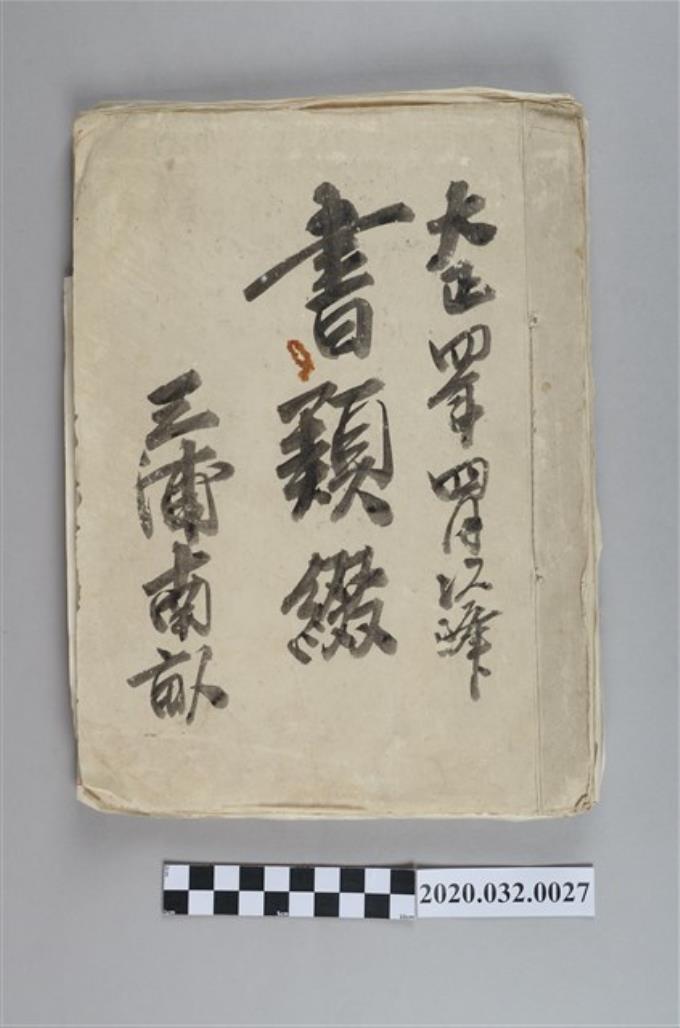 大正四年四月以降
書類綴
三浦南畝
2020.032.0027